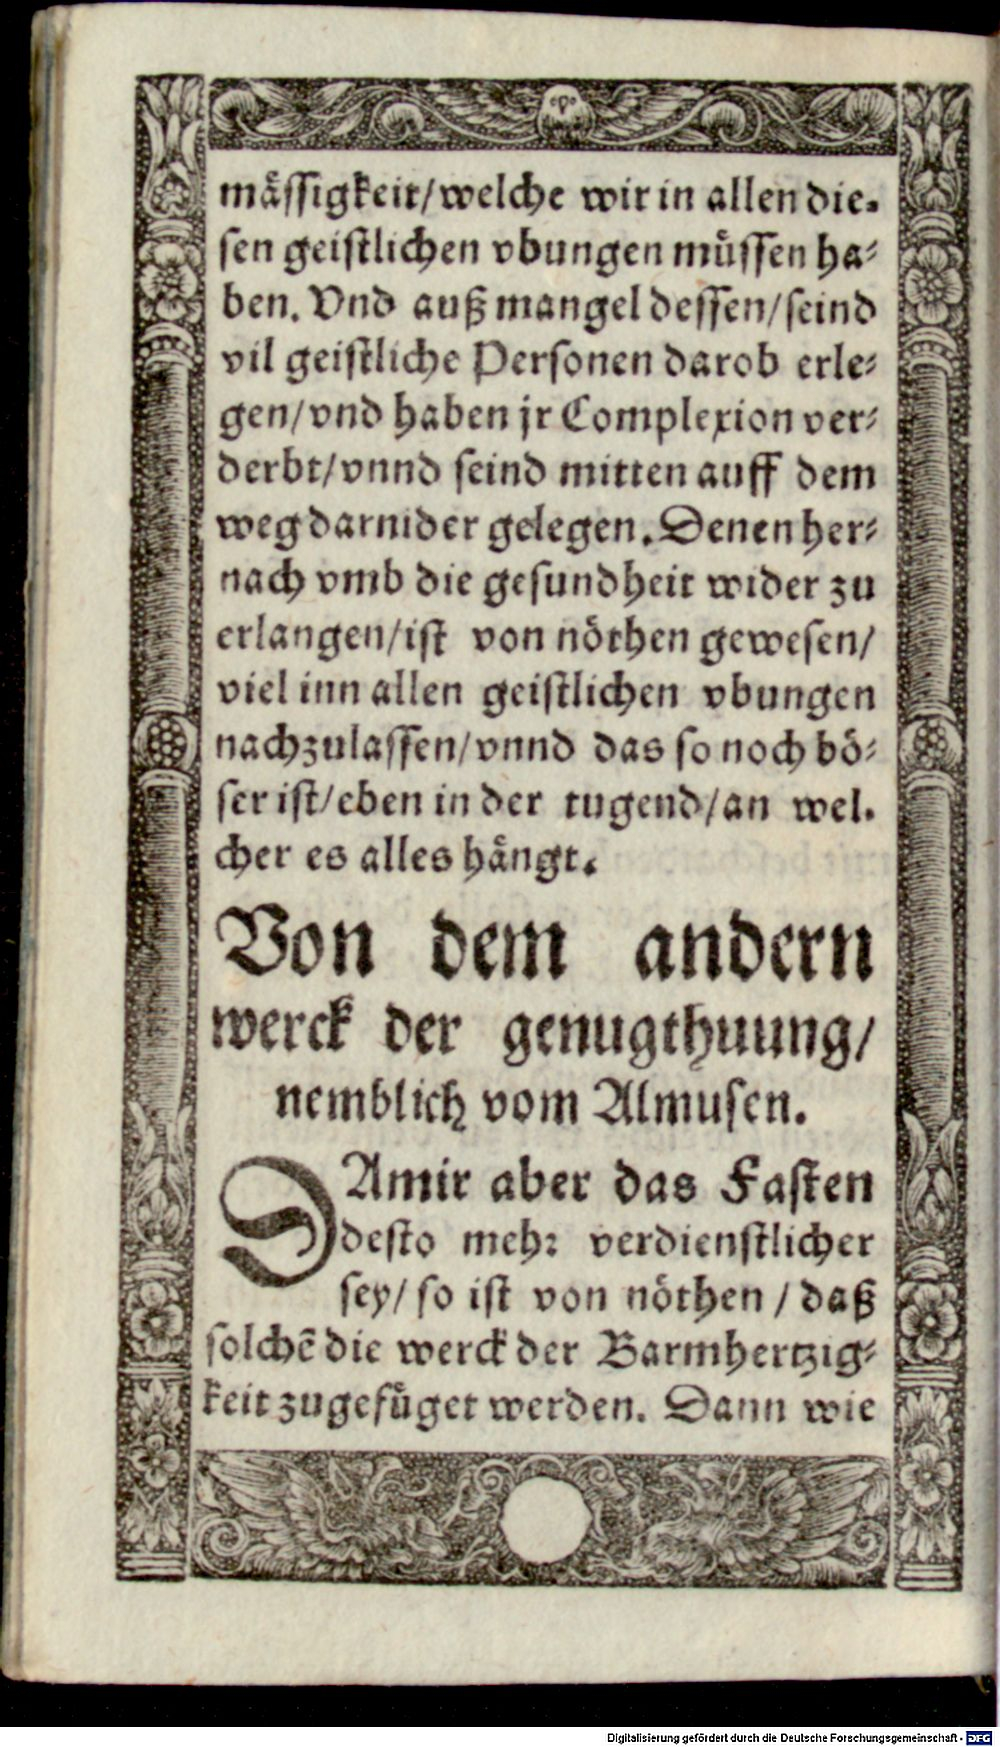 mässigkeit/welche wir in allen die-
sen geistlichen vbungen müssen ha-
ben. Vnd auß mangel dessen/seind
vil geistliche Personen darob erle-
gen/vnd haben jr Complexion ver-
derbt/vnnd seind mitten auff dem
weg darnider gelegen. Denen her-
nach vmb die gesundheit wider zu
erlangen/ist von nöthen gewesen/
viel inn allen geistlichen vbungen
nachzulassen/vnnd das so noch bö-
ser ist/eben in der tugend/an wel-
cher es alles hängt.
Von dem andern
werck der genugthuung/
nemblich vom Almusen.
DAmit aber das Fasten
desto mehr verdienstlicher
sey/ so ist von nöthen / daß
solchē die werck der Barmhertzig-
keit zugefüget werden. Dann wie
Digitalisierung gefördert durch die Deutsche Forschungsgemeinschaft - DFG